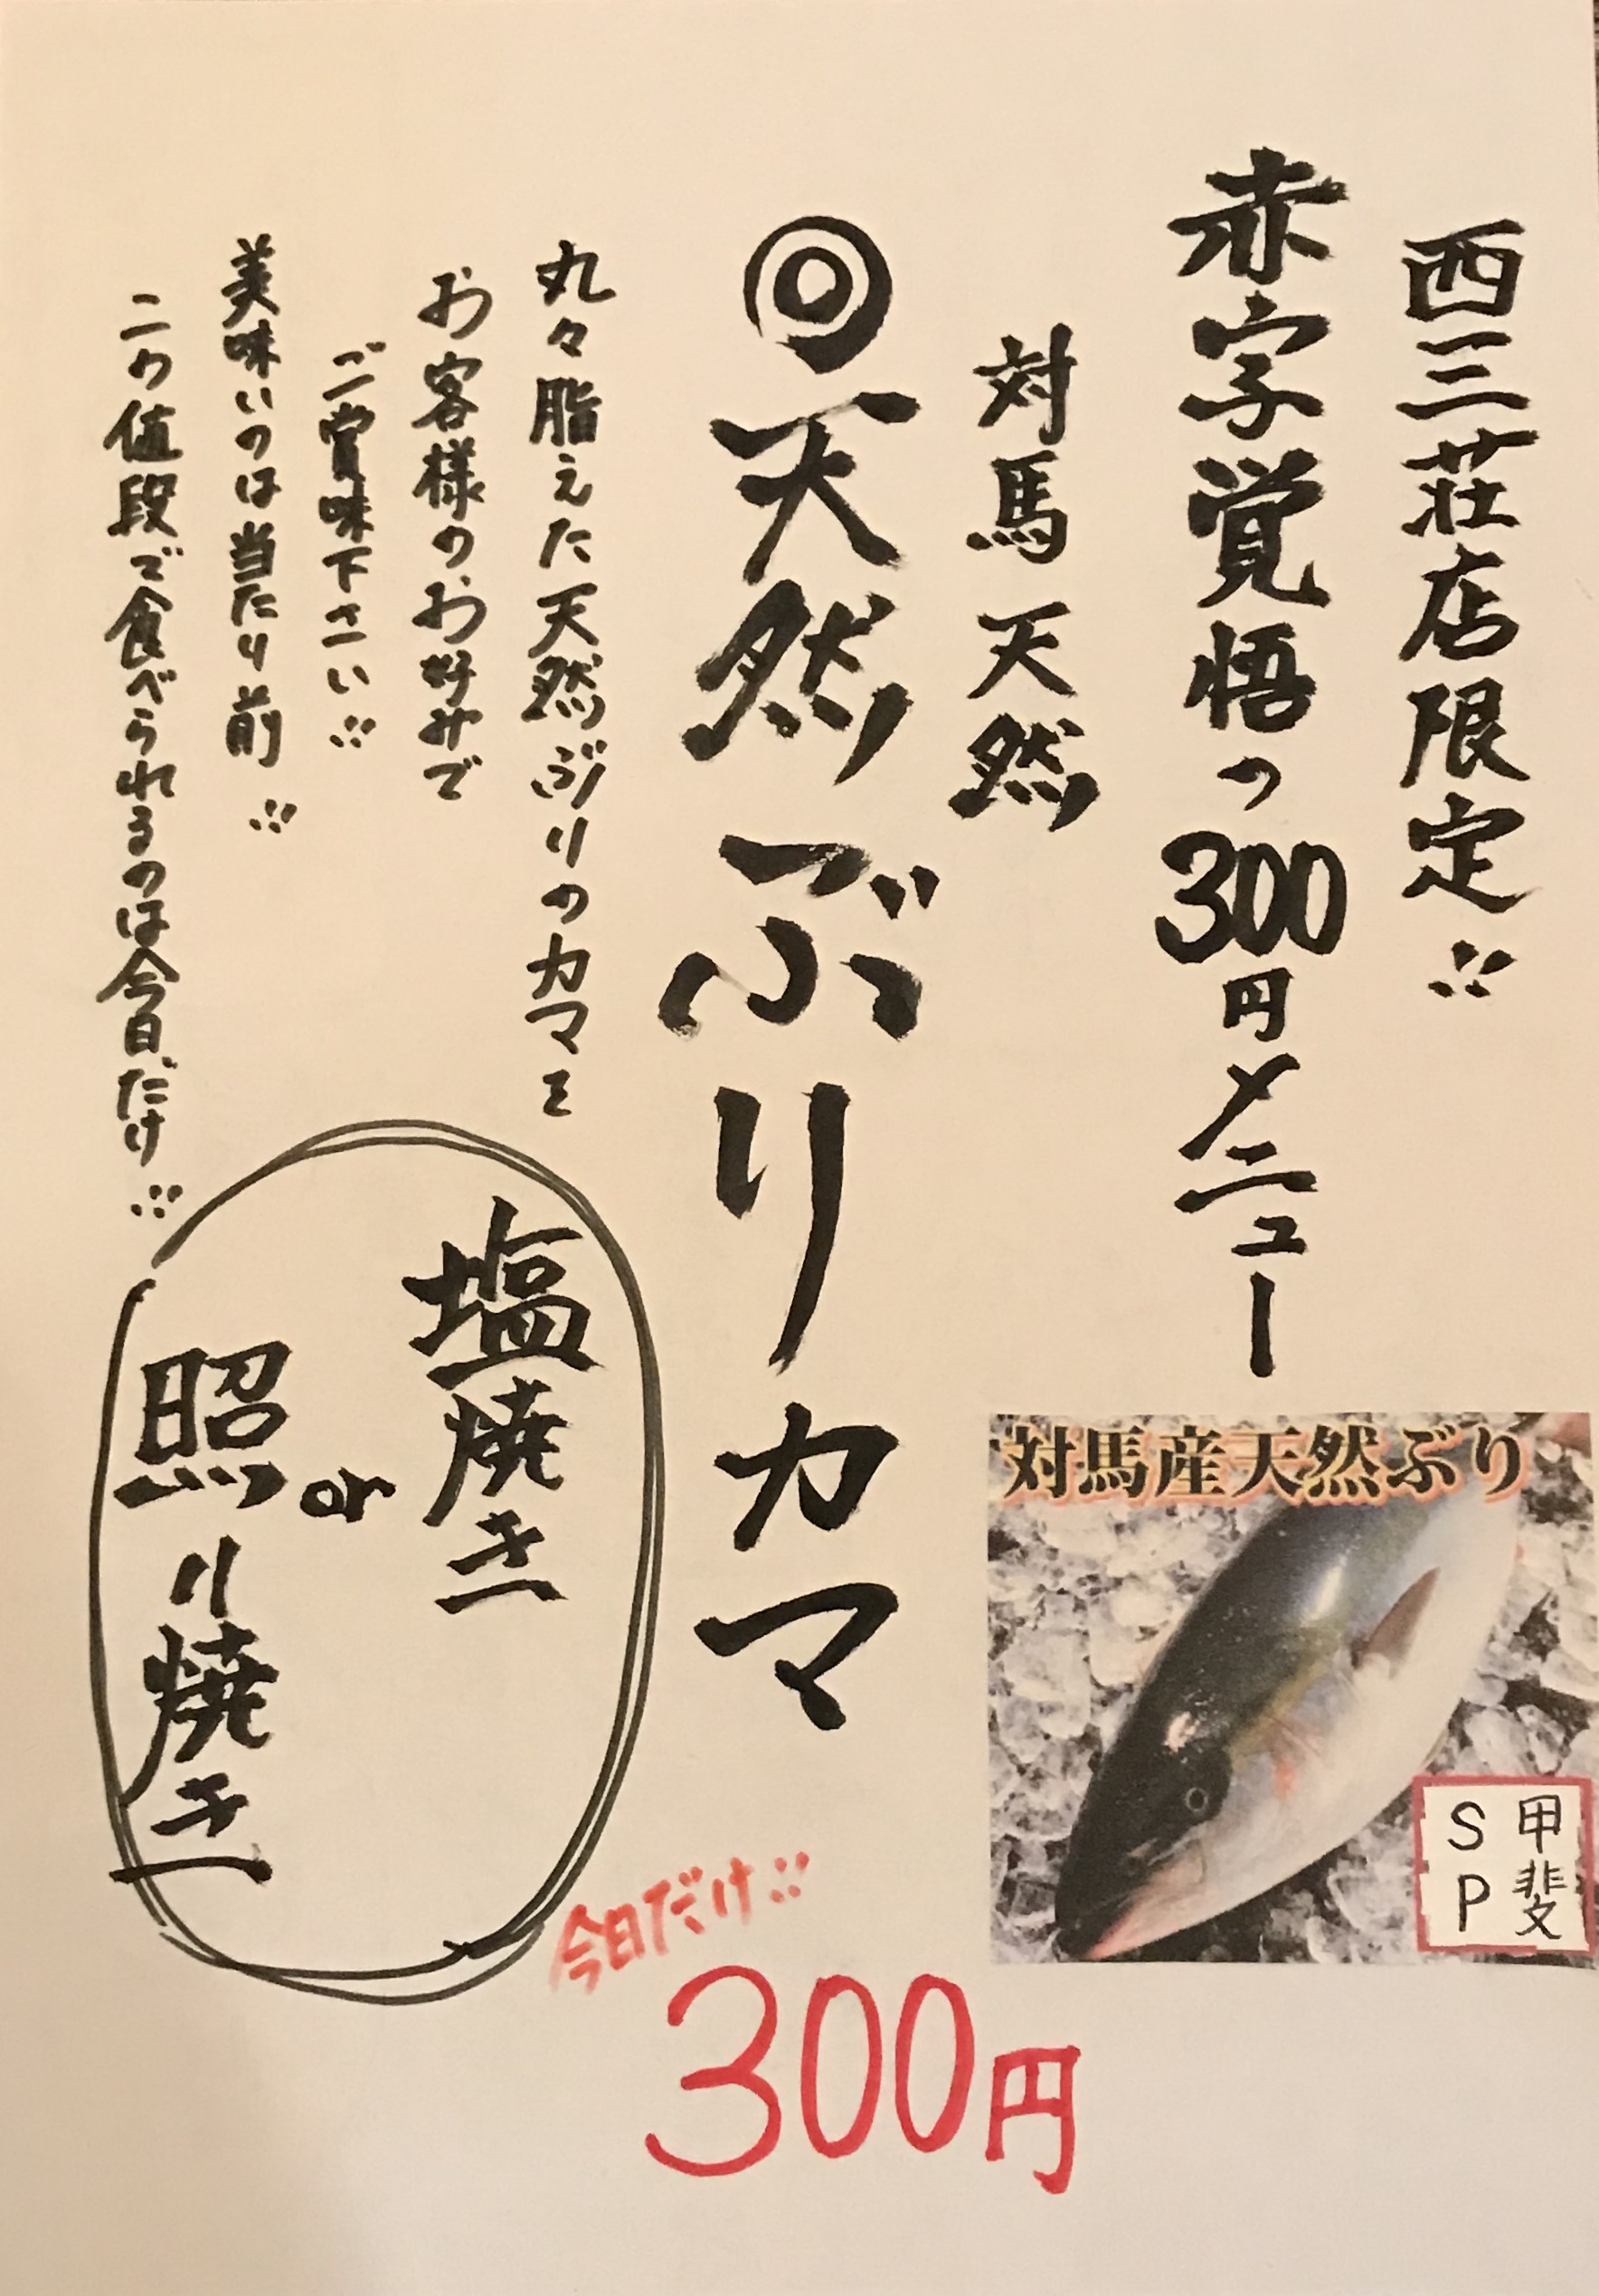 西三荘店限定!!
赤字覚悟の300円メニュー
対馬 天然
◎天然ぶりカマ
丸々脂えた天然ぶりのカマを
お客様のお好みで
ご賞味下さい!!
美味いのは当たり前!!
この値段で食べられるのは今日だけ!!
塩焼き
or
照り焼き
対馬産天然ぶり
甲斐
SP
今日だけ!!
300円